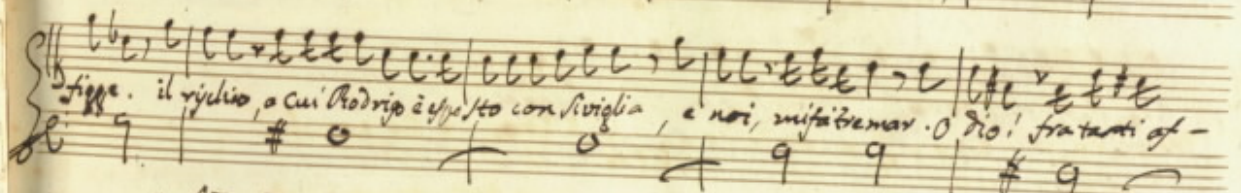 figge. il rischio, a cui Rodrigo è esposto con Siviglia, e noi, mi fà tremar. O dio! fra tanti af-